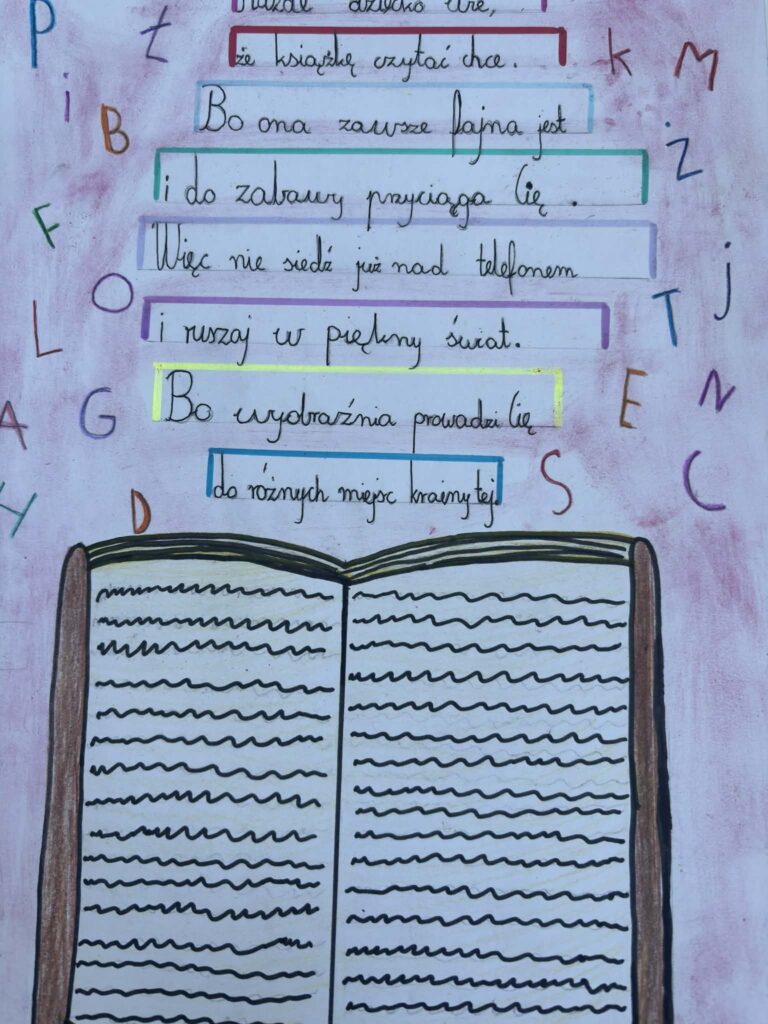 Każde dziecko wie,
że książkę czytać chce.
Bo ona zawsze fajna jest
i do zabawy przyciąga Cię.
Więc nie siedź już nad telefonem
i ruszaj w piękny świat.
Bo wyobraźnia prowadzi Cię
do różnych miejsc krainy tej.
P
t
k
M
i
B
Ż
F
j
O
T
L
E
N
A
G
S
C
H
D